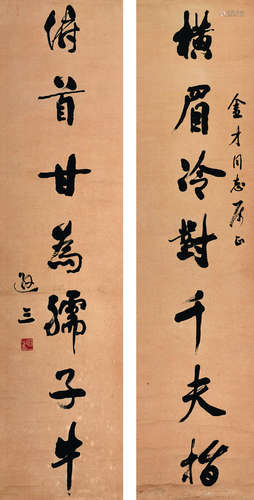 橫眉冷對千夫指
金才同志属正
俯首甘為孺子牛
三